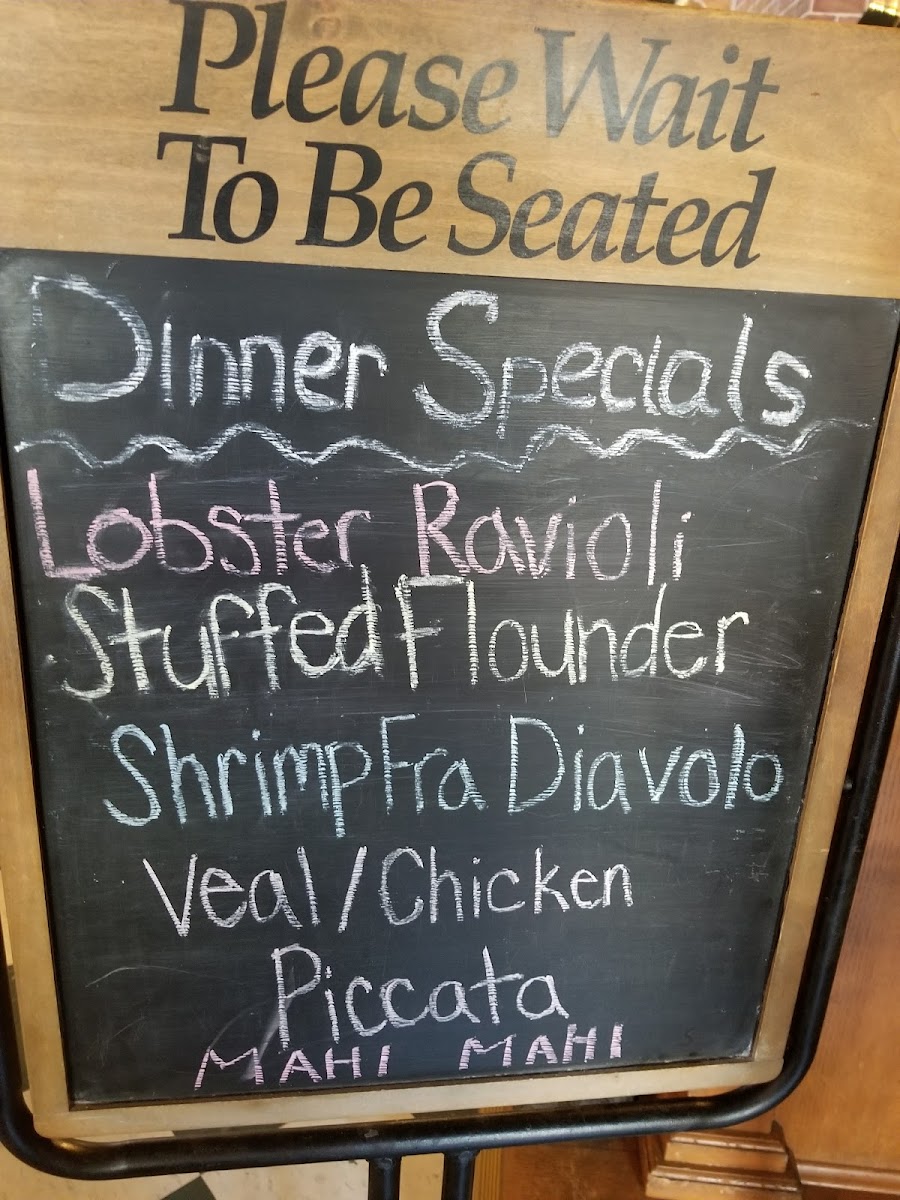 Please Wait
To Be Seated
Dinner Specials
Lobster Ravioli
Stuffed Flounder
Shrimp Fra Diavolo
Veal/Chicken
Piccata
MAHI MAHI